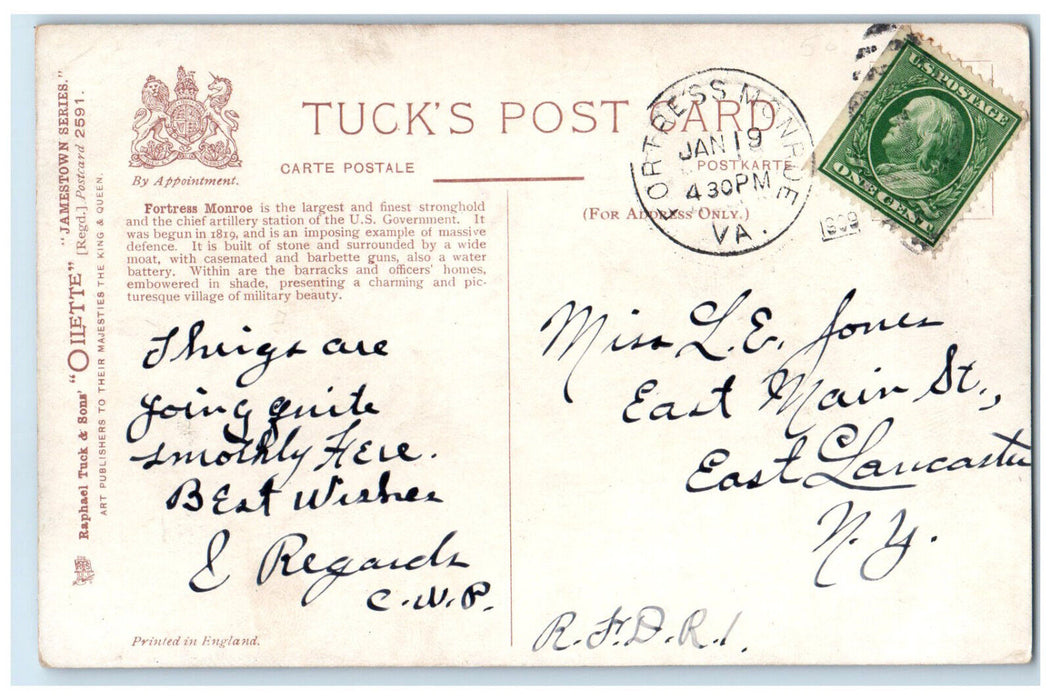 "JAMESTOWN SERIES."
Raphael Tuck & Sons' "OILETTE" [Regd.] Postcard 2591.
ART PUBLISHERS TO THEIR MAJESTIES THE KING & QUEEN.
By Appointment.
TUCK'S POST CARD
CARTE POSTALE
POSTKARTE
(FOR ADDRESS ONLY.)
FORTRESS MONROE
JAN 19
4 30 PM
VA.
1909
U.S. POSTAGE
ONE CENT
Fortress Monroe is the largest and finest stronghold
and the chief artillery station of the U.S. Government. It
was begun in 1819, and is an imposing example of massive
defence. It is built of stone and surrounded by a wide
moat, with casemated and barbette guns, also a water
battery. Within are the barracks and officers' homes,
embowered in shade, presenting a charming and pic-
turesque village of military beauty.
Things are
going quite
smothly Here.
Best Wishes
& Regards
C.W.P.
Printed in England.
Miss L.E. Jones
East Main St.,
East Lancaster
N.Y.
R.F.D.R.1.